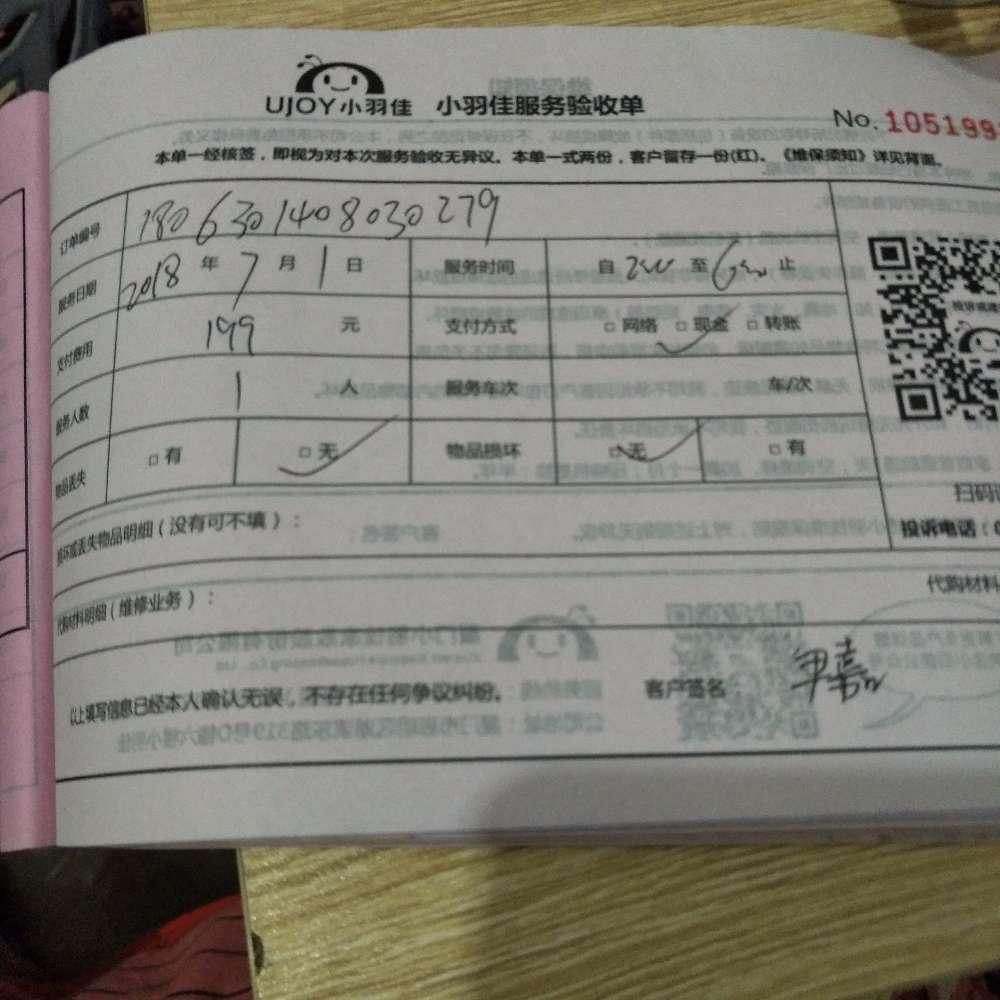 UJOY小羽佳 小羽佳服务验收单
No. 105199
本单一经核签，即视为对本次服务验收无异议。本单一式两份，客户留存一份(红)。《维保须知》详见背面。
订单编号 1806301408030279
服务日期 2018 年 7 月 1 日 服务时间 自 至 止
支付费用 199 元 支付方式 □ 网络 □ 现金 □ 转账
服务人数 1 人 服务车次 车/次
物品丢失 □ 有 □ 无 物品损坏 □ 无 □ 有
扫码
投诉电话：(0
损坏或丢失物品明细（没有可不填）：
代购材料明细（维修业务）： 代购材料
以上填写信息已经本人确认无误，不存在任何争议纠纷。 客户签名：